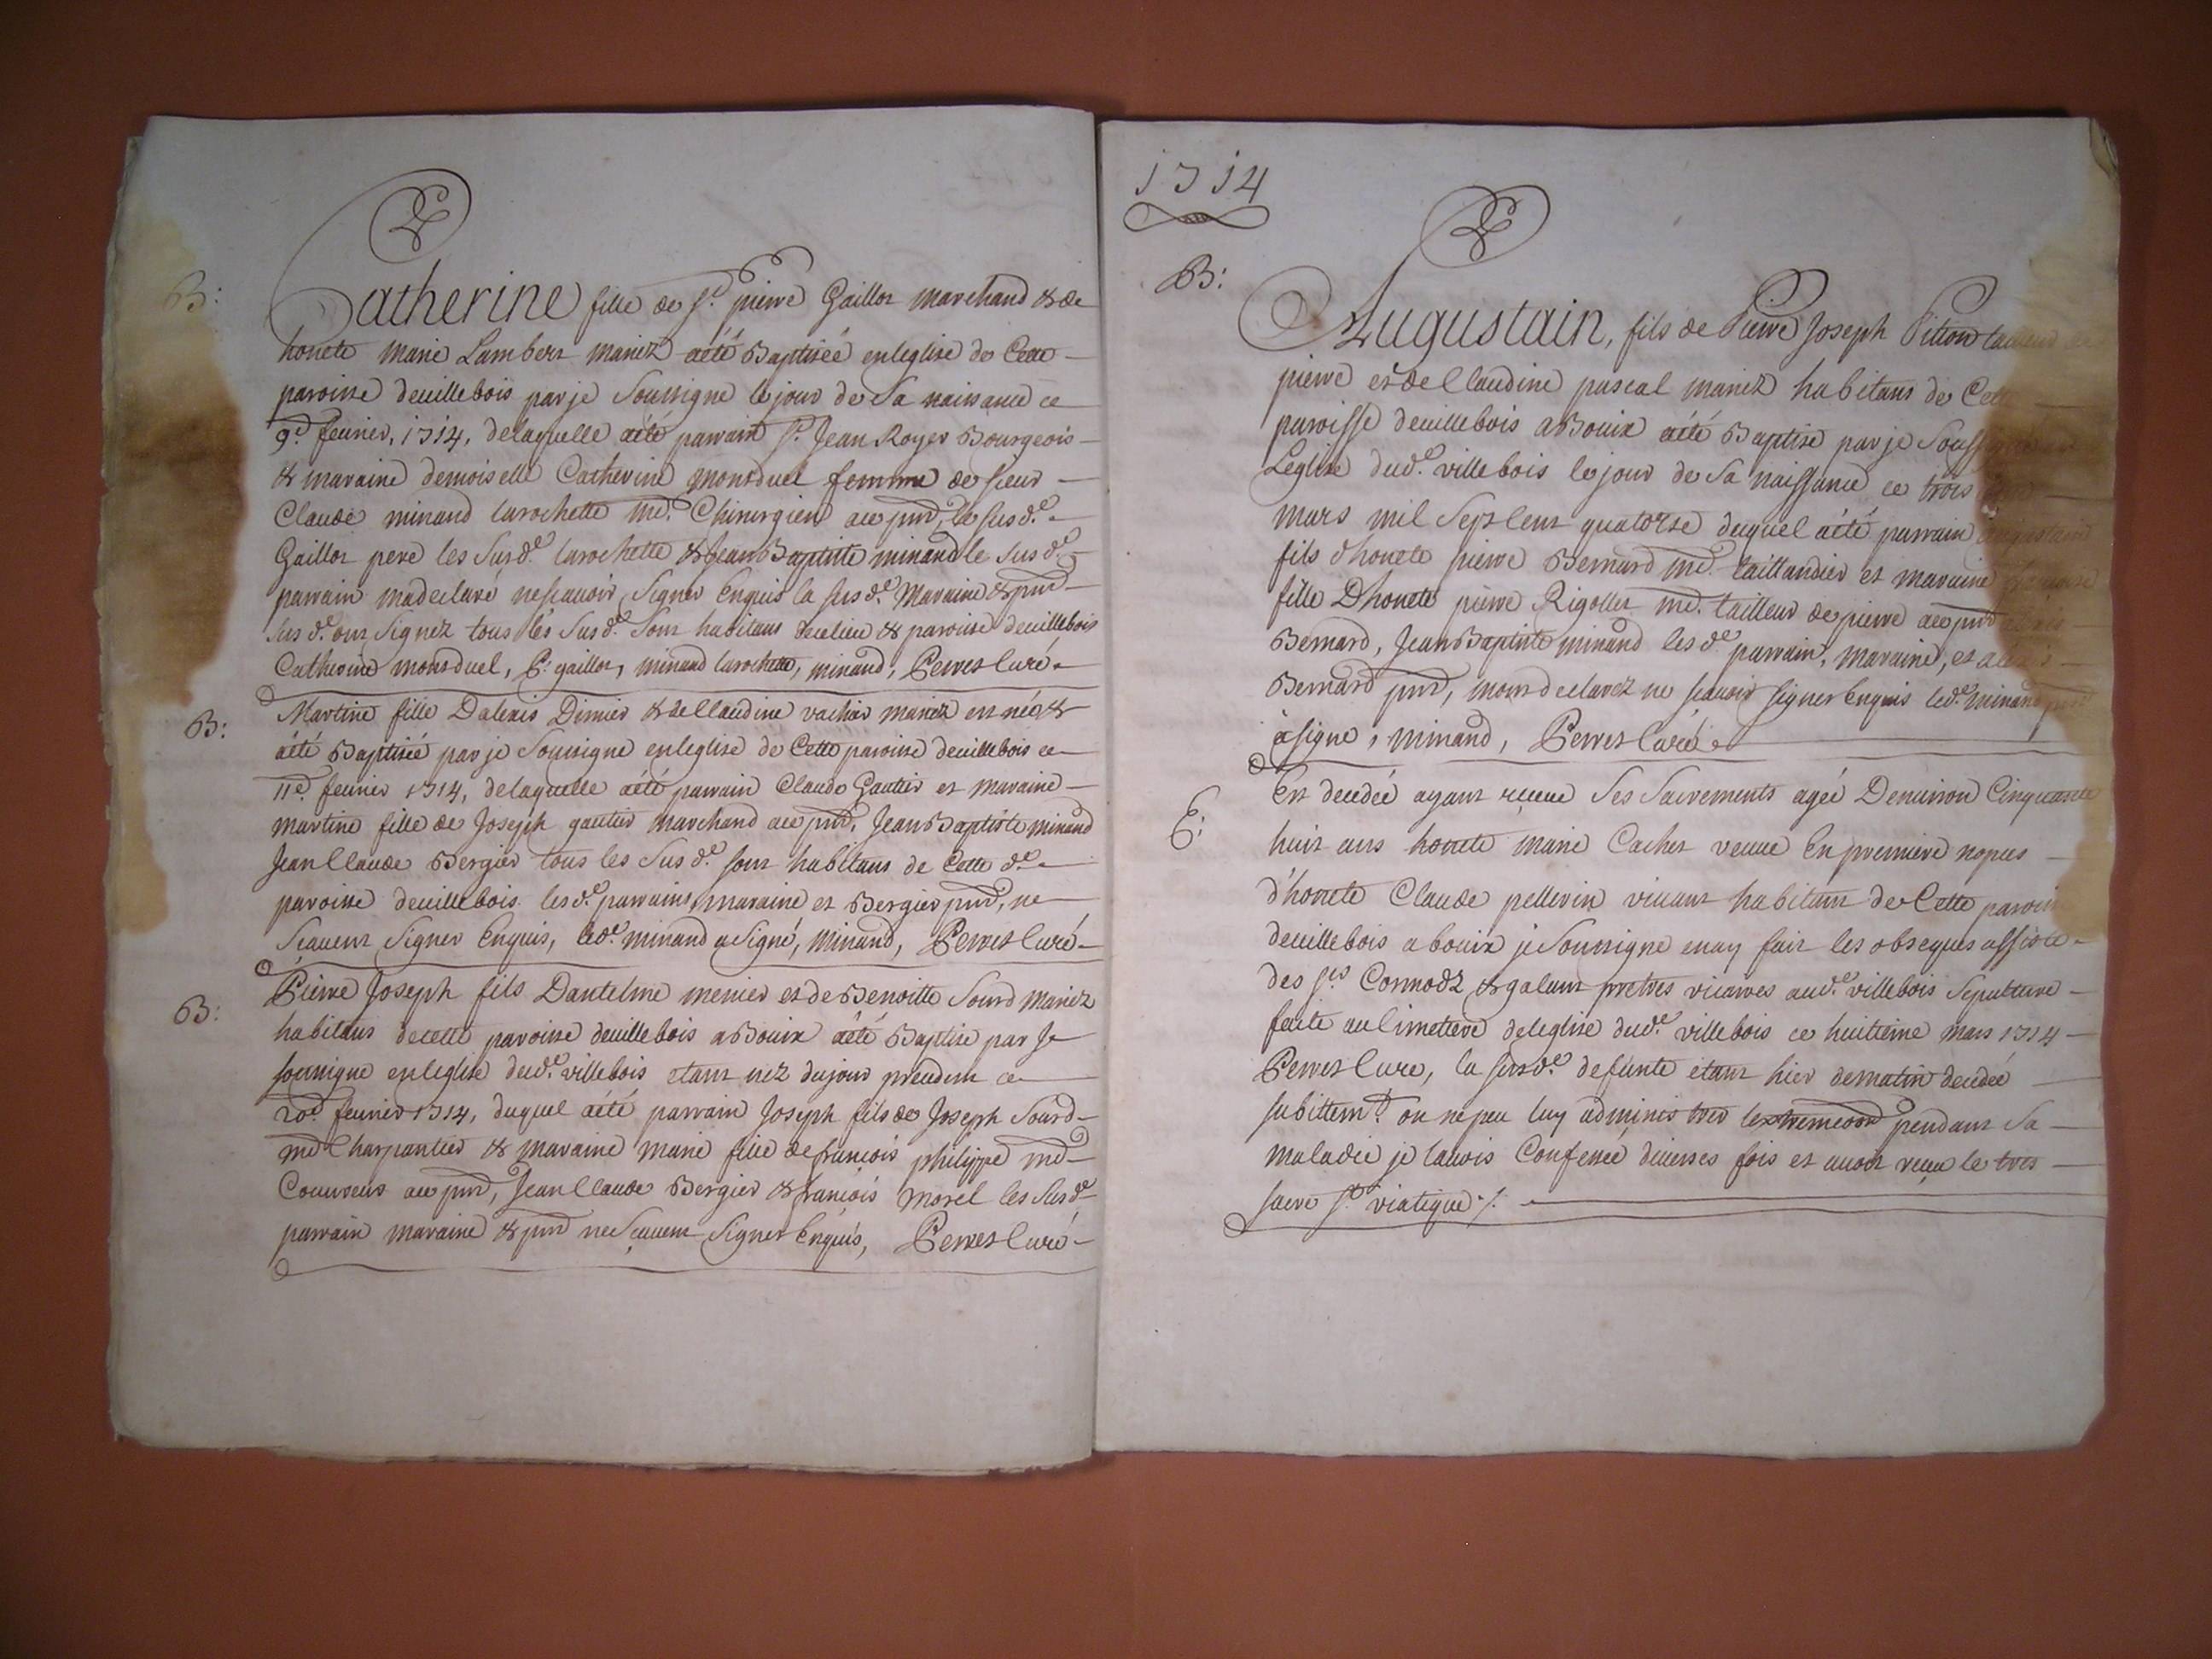 B:
Catherine fille de sr. pierre Gaillot marchand & de
honete marie Lambert mariez a été Baptisée en leglise de Cette
paroisse deuillebois par je Soussigne le jour de Sa naissance ce
9e. feurier, 1714, delaquelle a été parrain sr. Jean Royer Bourgeois
& maraine demoiselle Catherine monsduel femme de sieur
Claude minand larochette me. Chirurgien aue pnts, le susd.e
Gaillot pere les Susd.e larochette & Jean Baptiste minand le Susd.e
parrain madeclaré ne scauoir Signer Enquis la susd.e Maraine & pnts
Susd.e ont Signez tous les Susd.e Sont habitans decelieu & paroisse deuillebois
Catherine monsduel, P. gaillot, minand larochette, minand, Perret Curé.
B:
Martine fille Dalexis Dimier & de Claudine vachier mariez est née &
a été Baptisée par je Soussigne en leglise de Cette paroisse deuillebois ce
11e. feurier 1714, delaquelle a été parrain Claude Gautier et maraine
martine fille de Joseph gautier marchand aue pnts, Jean Baptiste minand
Jean Claude Bergier tous les Susd.e sont habitans de Cette d.e
paroisse deuillebois lesd.e parrains, maraine et Bergier pnts, ne
Scauent Signer Enquis, led.e minand a Signé, Minand, Perret Curé
B:
Pierre Joseph fils Dantelme menier et de Benoitte Sourd mariez
habitans decette paroisse deuillebois a Bouix a été Baptise par Je
soussigne en leglise dud.e villebois etant nez dujour preudent ce
20e. feurier 1714, duquel a été parrain Joseph fils de Joseph Sourd
me Charpantier & maraine marie fille de francois philippe me
Couureur aue pnts, Jean Claude Bergier & francois morel les Susd.e
parrain maraine & pnts ne Scauent Signer Enquis, Perret Curé
1714
B:
Augustain, fils de Pierre Joseph Pitton
pierre et de Claudine pascal mariez habitans de Cette
paroisse deuillebois a Bouix a été Baptise par je
Leglise dud.e villebois le jour de Sa naissance ce trois
mars mil Sept Cent quatorse duquel a été parrain
fils dhonete pierre Bernard me. taillandier et maraine
fille Dhonete pierre Rigollet me. tailleur de pierre aue pnts
Bernard, Jean Baptiste minand les d.e parrain, maraine, et alexis
Bernard pnts, mont declarez ne scauoir signer Enquis led.e minand
a signe, minand, Perret Curé
E:
Est decedée ayant receue Ses Sacrements agée Denuiron Cinquante
huit ans honete marie Cachet veuue En premiere nopces
d'honete Claude pellerin viuant habitant de Cette
deuillebois a bouix je Soussigne enay fait les obseques assiste
des srs Connodz & galant pretres vicaires aud.e villebois Sepulture
faite au Cimetiere deleglise dud.e villebois ce huitieme mars 1714
Perret Cure, la susd.e defunte etant hier dematin decedeé
subittemt. on ne peu luy administrer lextremeon pendant Sa
maladie je lauois Confessée diuerses fois et auoit receu le tres
sacre st. viatique /.